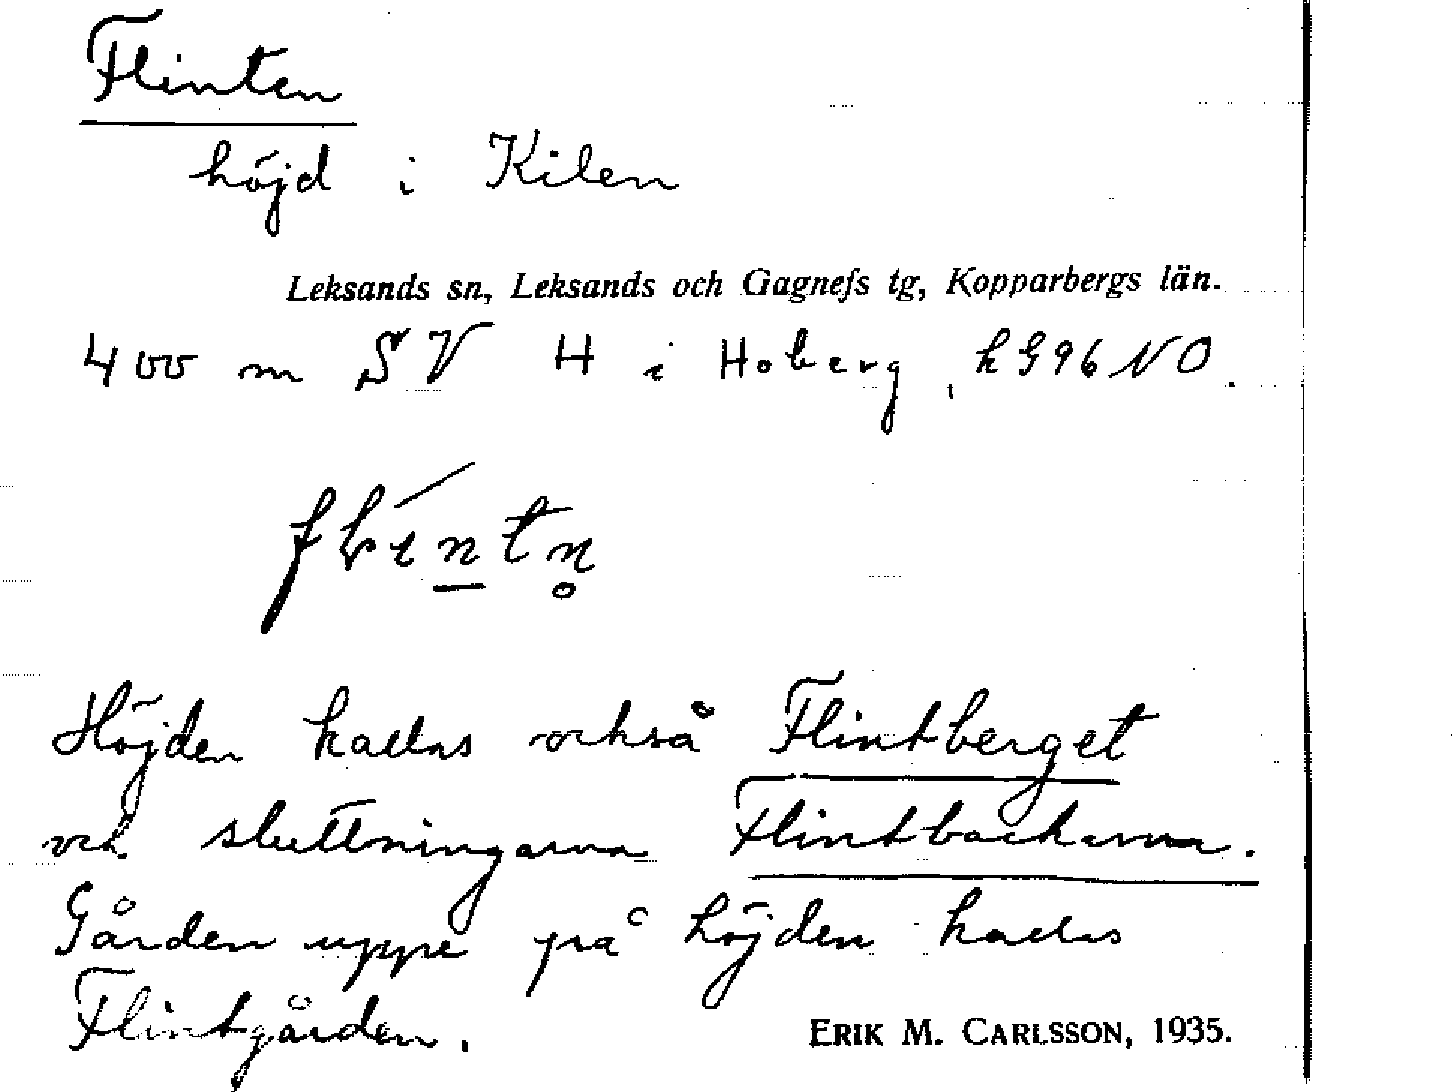 Flinten
höjd i Kilen
Leksands sn, Leksands och Gagnefs tg, Kopparbergs län.
400 m SV H i Hoberg, kG96NO.
Höjden kallas också Flintberget
och sluttningarna Flintbackarna.
Gården uppe på höjden kallas
Flintgården.
ERIK M. CARLSSON, 1935.